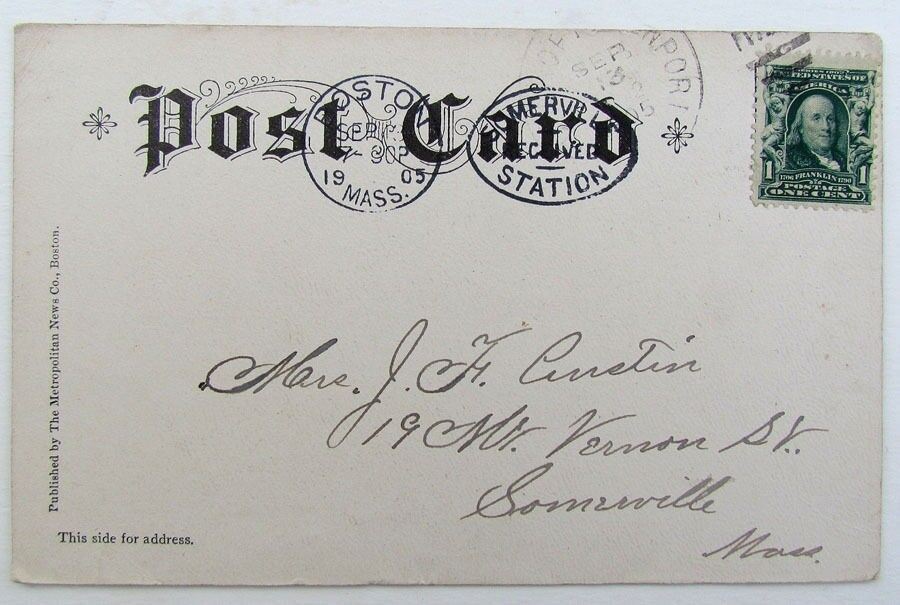 Post Card
BOSTON
SEP
30P
19 05
MASS.
SOMERVILLE
RECEIVED
STATION
SEP
SERIES 1902
UNITED STATES OF
AMERICA
1706 FRANKLIN 1790
POSTAGE
1 ONE CENT 1
Mrs. J. F. Austin
19 Mt. Vernon St.
Somerville
Mass.
Published by The Metropolitan News Co., Boston.
This side for address.